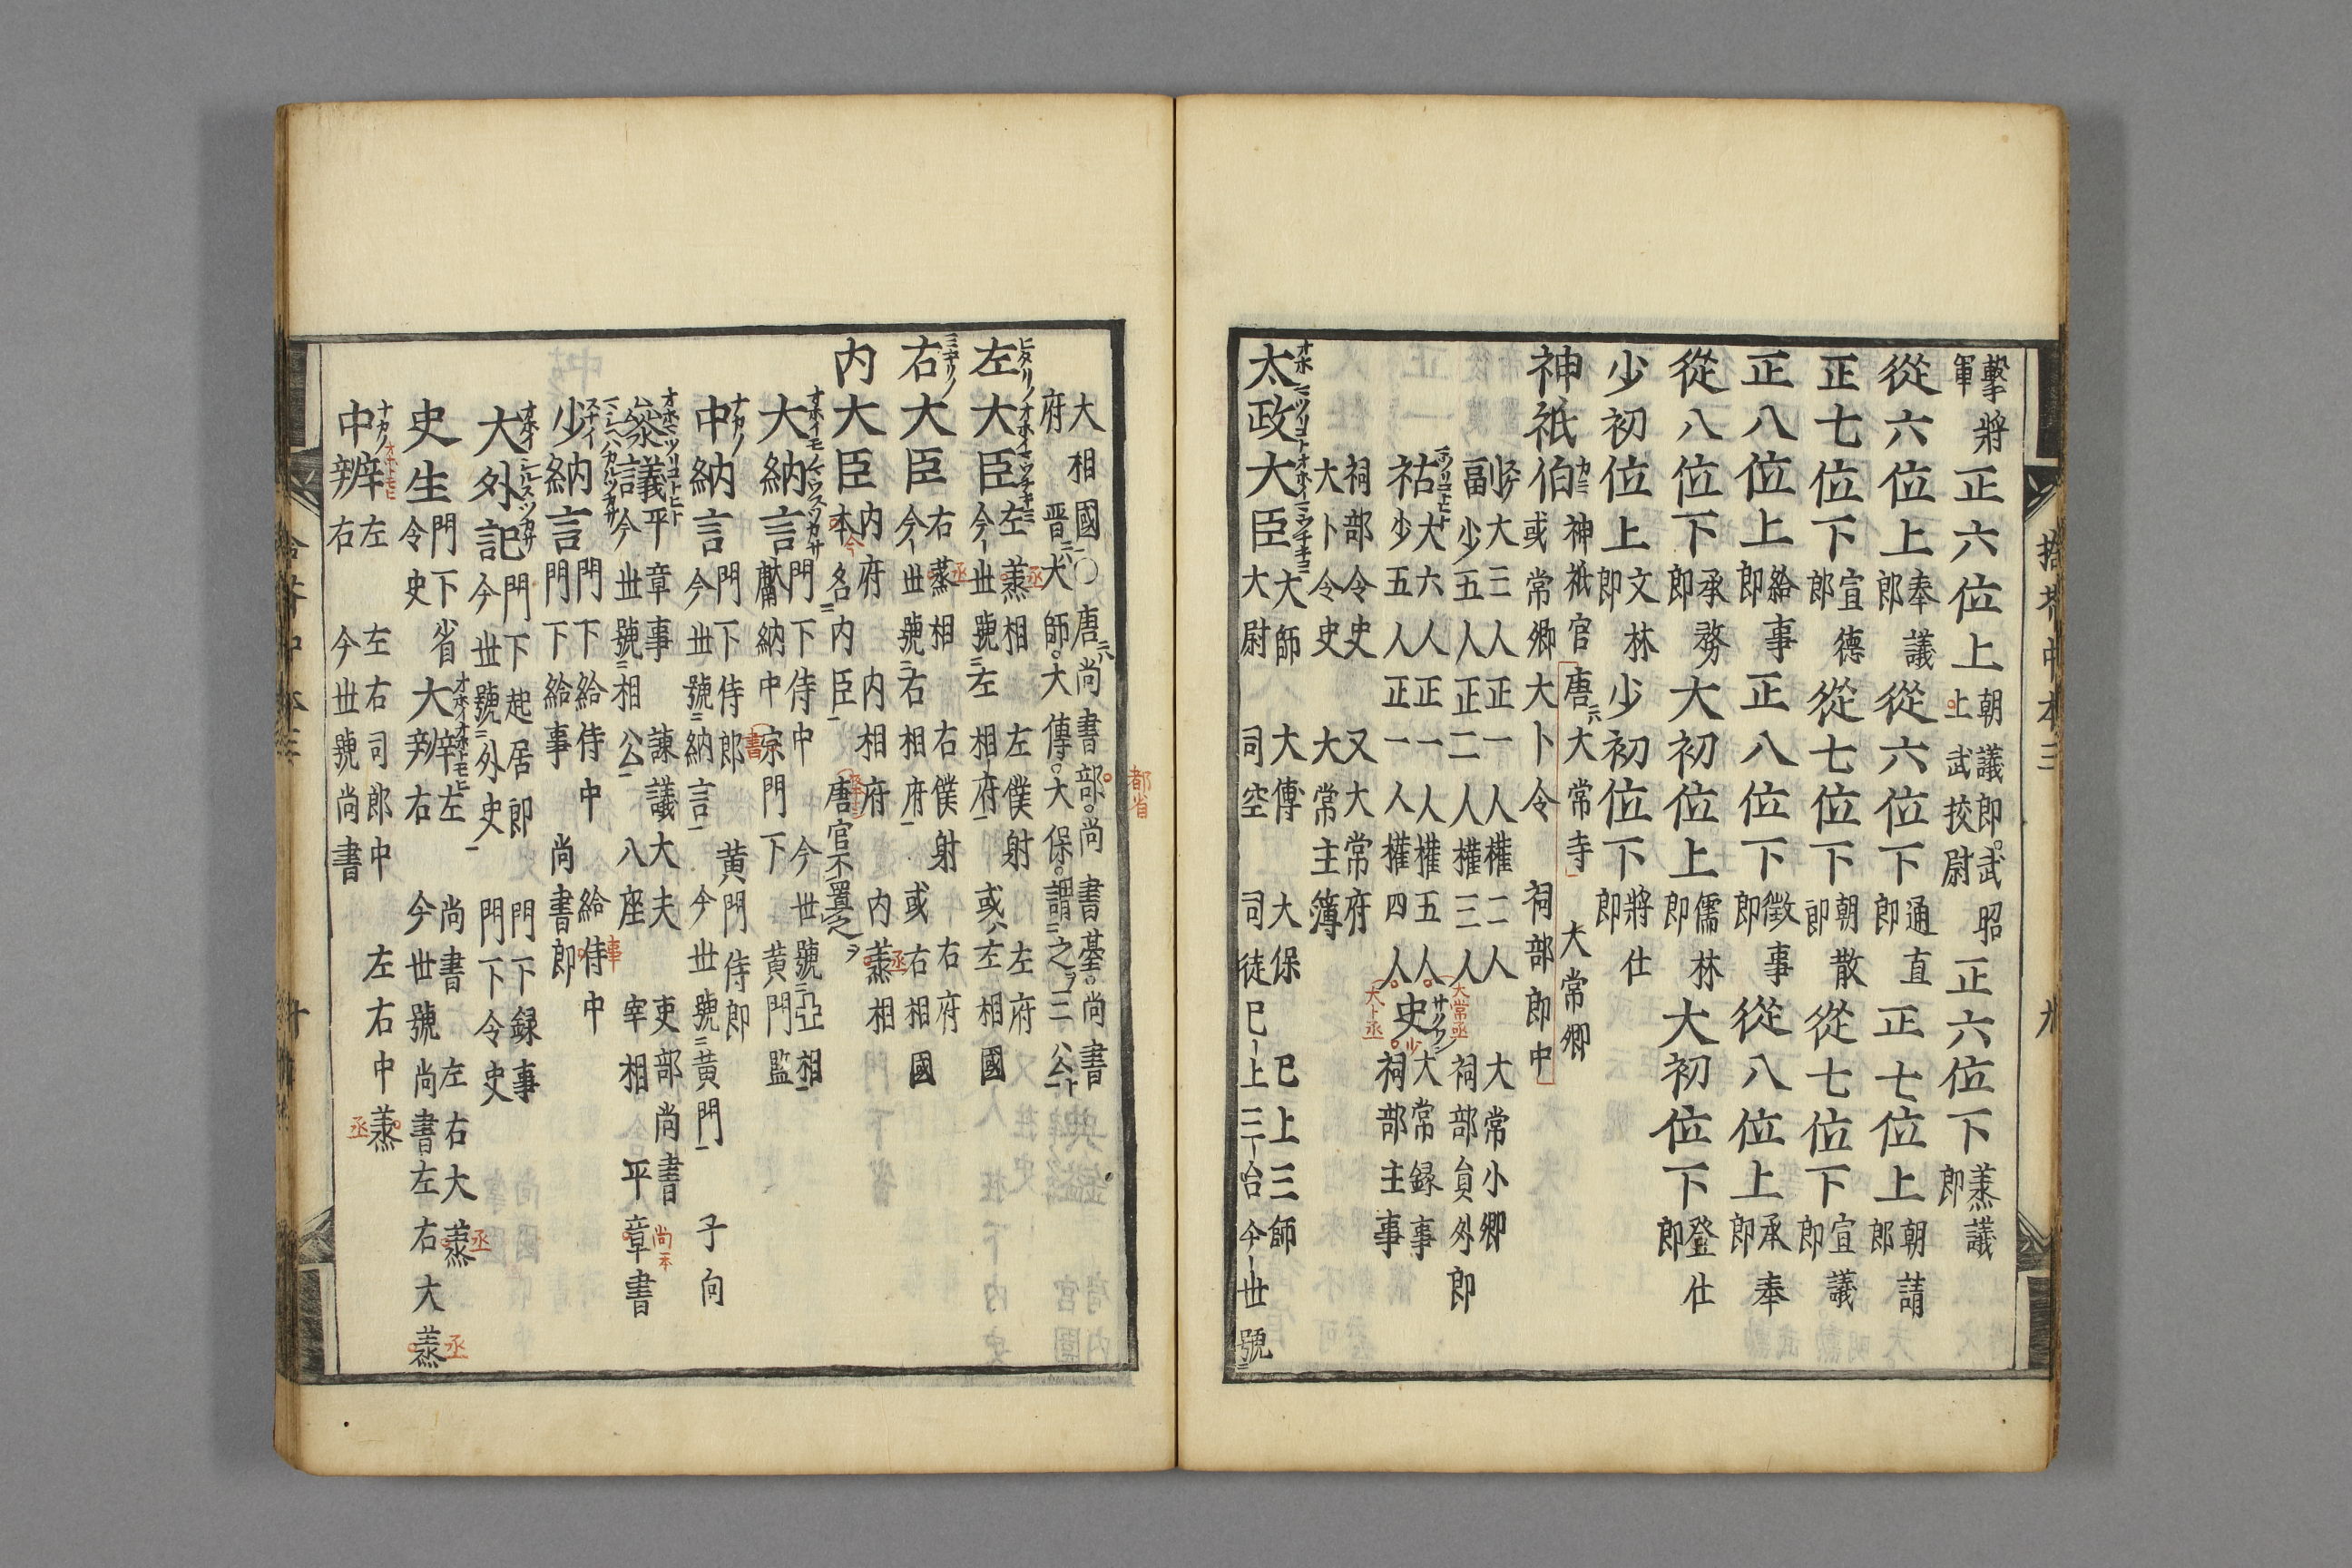 擊將軍 正六位上 朝議郎武上武挍尉昭 正六位下 蒸議郎
從六位上 奉議郎 從六位下 通直郎 正七位上 朝請郎
正七位下 宣德郎 從七位下 朝散郎 從七位下 宣議郎
正八位上 給事郎 正八位下 徵事郎 從八位上 承奉郎
從八位下 承務郎 大初位上 儒林郎 大初位下 登仕郎
少初位上 文林郎 少初位下 將仕郎
神祇伯 神祇官 唐ニハ大常寺 大常卿
或常卿 大卜令 祠部郎中
副 大三人正一人權二人 大常小卿
少五人正二人權三人 祠部員外郎
祐 大六人正一人權五人 史 大常録事
少五人正一人權四人 祠部主事
祠部令史 又大常府
大卜令史 大常主簿
太政大臣 大師 大傅 大保 已上三師
大尉 司空 司徒 已上三台 今世號ニ
拾芥中本三 九
大相國一〇唐ニハ尚書部尚書臺尚書
府 晋ニハ大師大傅大保謂ニ之ヲ三公一
都省
左大臣 左蒸相 左僕射 左府
今世號ニ左相府一 或左相國
右大臣 右蒸相 右僕射 右府
今世號ニ右相府一 或右相國
内大臣 内府 内相府 内蒸相
本名ニ内臣一 唐官不置之ヲ
大納言 門下侍中 今世號ニ亞相一
獻納中 宗門下 黄門監
中納言 門下侍郎 黄門侍郎
今世號ニ納言一 今世號ニ黄門一 子向
叅議 平章事 諫議大夫 吏部尚書
今世號ニ相公一 八座 宰相 平章書
少納言 門下給侍中 給侍中
門下給事 尚書郎
大外記 門下起居郎 門下録事
今世號ニ外史一 門下令史
史生 門下省 大辨 左 尚書 左右大蒸
令史 右 今世號尚書左右大蒸
中辨 左 左右司郎中 左右中蒸
右 今世號尚書